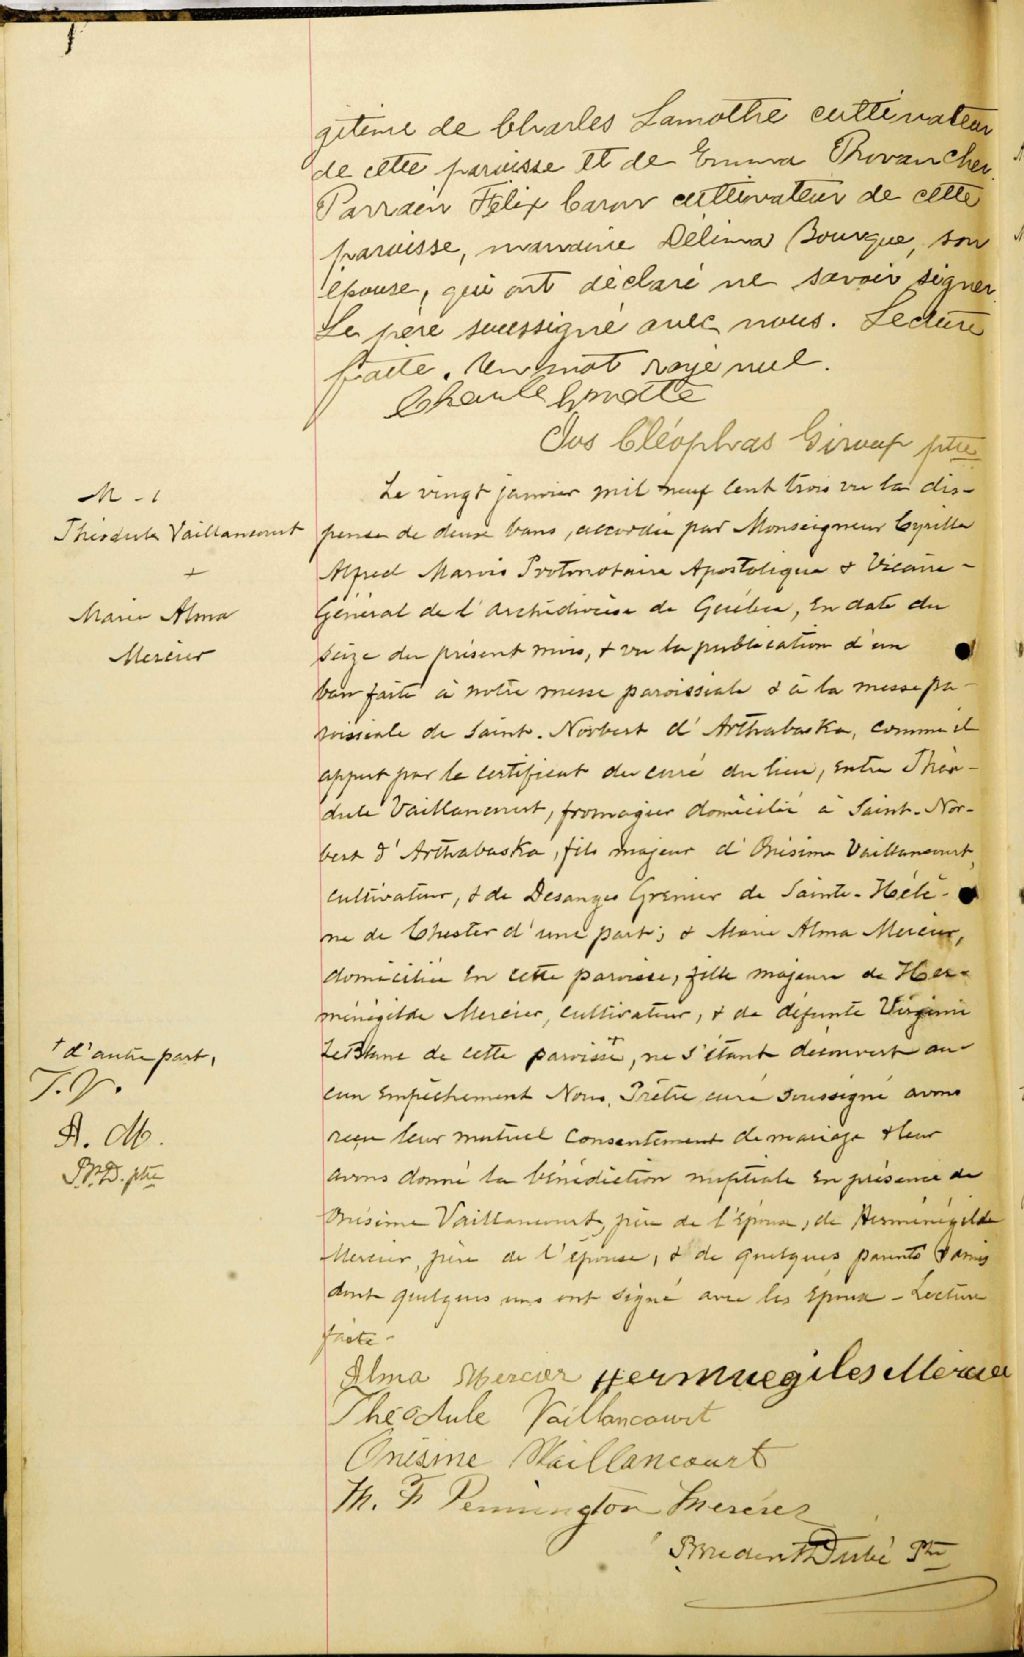 gitime de Charles Lamothe cultivateur
de cette paroisse et de Emma Provancher.
Parrain Félix Caron cultivateur de cette
paroisse, marraine Délima Bourque, son
épouse, qui ont déclaré ne savoir signer.
Le père soussigné avec nous. Lecture
faite. Un mot rayé nul.
Charle Lamotte
Jos Cléophas Giroux ptre
M - 1
Théodule Vaillancourt
+
Marie Alma
Mercier
Le vingt janvier mil neuf cent trois vu la dis-
pense de deux bans, accordée par Monseigneur Cyrille
Alfred Marois Protonotaire Apostolique & Vicaire-
Général de l'Archidiocèse de Québec, en date du
seize du présent mois, & vu la publication d'un
ban faite à notre messe paroissiale & à la messe pa-
roissiale de Saint-Norbert d'Arthabaska, comme il
appert par le certificat du curé du lieu, entre Théo-
dule Vaillancourt, fromager domicilié à Saint-Nor-
bert d'Arthabaska, fils majeur d'Onésime Vaillancourt,
cultivateur, & de Desanges Grenier de Sainte-Hélè-
ne de Chester d'une part; & Marie Alma Mercier,
domiciliée en cette paroisse, fille majeure de Her-
ménégilde Mercier, cultivateur, & de défunte Virginie
LeBlanc de cette paroisse +, ne s'étant découvert au-
cun empêchement Nous, Prêtre curé soussigné avons
reçu leur mutuel consentement de mariage & leur
avons donné la bénédiction nuptiale en présence de
Onésime Vaillancourt, père de l'époux, de Herménégilde
Mercier, père de l'épouse, & de quelques parents & amis
dont quelques uns ont signé avec les époux - Lecture
faite -
+ d'autre part,
T. V.
A. M.
P.D. ptre
Alma Mercier Hermnuegiles Mercier
Théodule Vaillancourt
Onésime Vaillancourt
M. F Pennington Mercier
Prudent Dubé Ptre